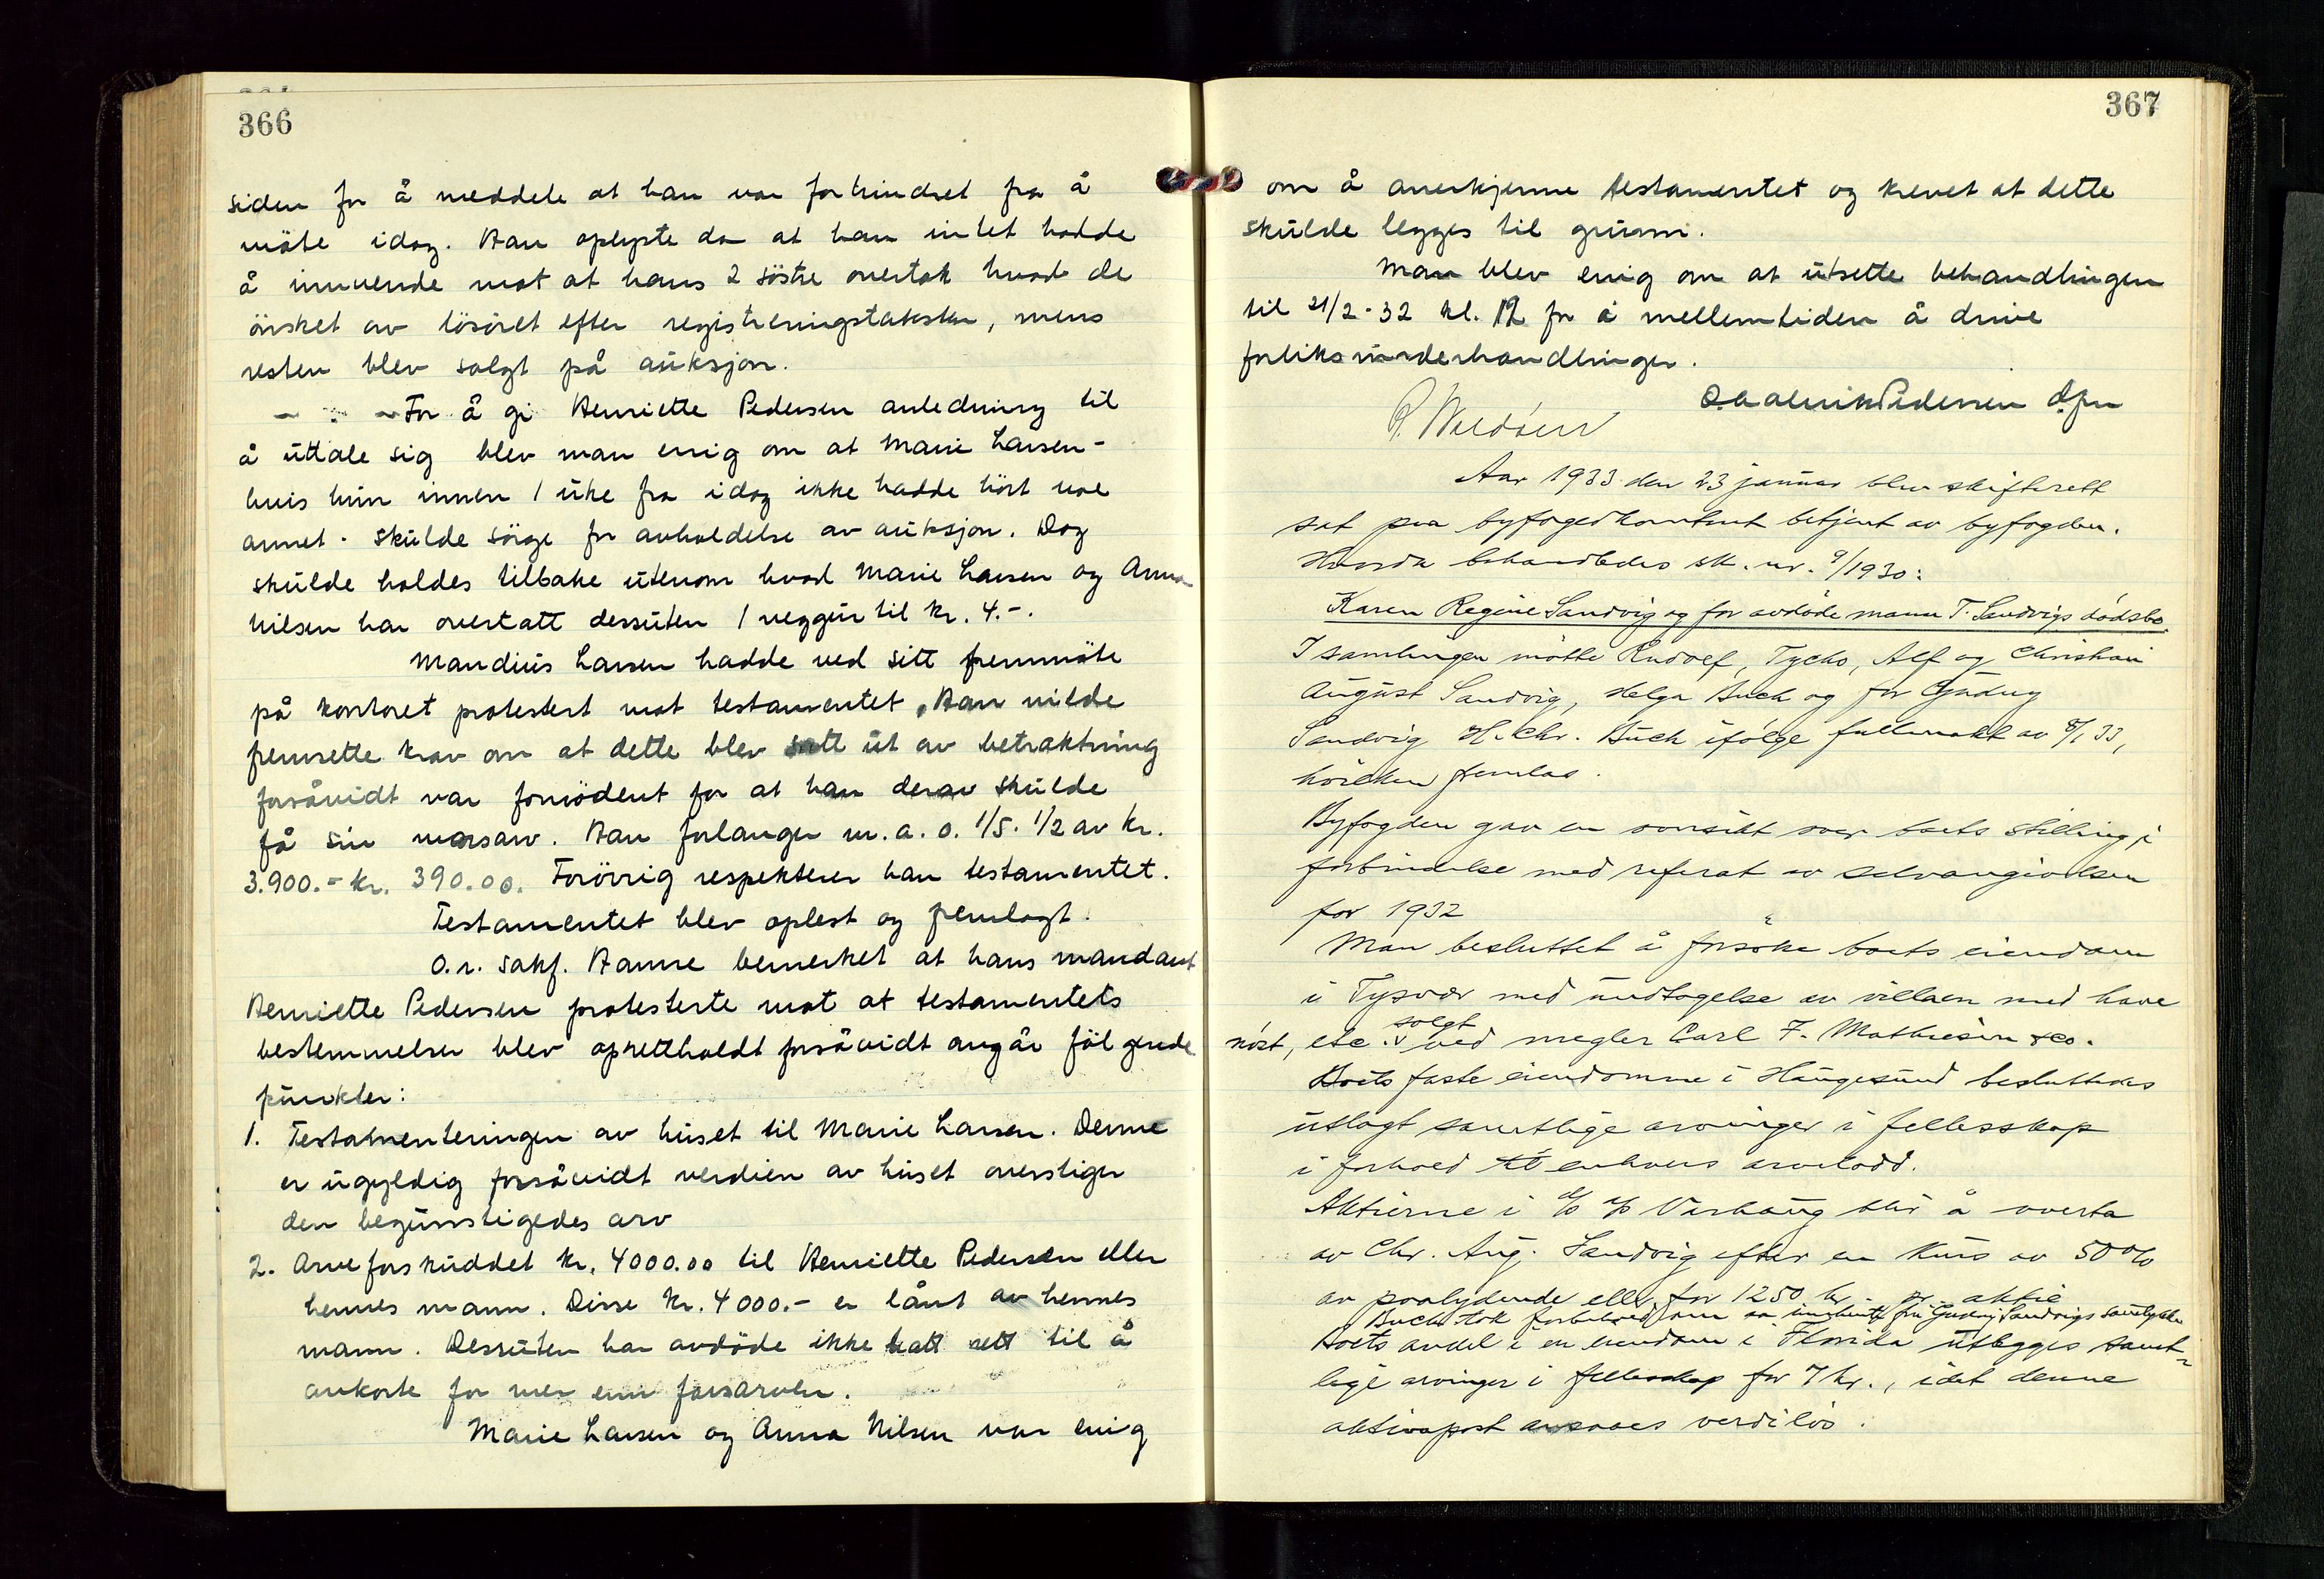 366
siden for å meddele at han var forhindret fra å
møte idag. Han oplyste da at han intet hadde
å innvende mot at hans 2 søstre overtok hvad de
ønsket av løsøret efter registreringstaksten, mens
resten blev solgt på auksjon.
For å gi Henriette Pedersen anledning til
å uttale sig blev man enig om at Marie Larsen -
hvis hun innen 1 uke fra idag ikke hadde hørt noe
annet - skulde sørge for avholdelse av auksjon. Dog
skulde holdes tilbake utenom hvad Marie Larsen og Anna
Nilsen har overtatt dessuten 1 veggur til kr. 4.-.
Mandius Larsen hadde ved sitt fremmøte
på kontoret protestert mot testamentet. Han vilde
fremsette krav om at dette blev satt ut av betraktning
forsåvidt var fornødent for at han derav skulde
få sin morsarv. Han forlanger m.a.o. 1/5. 1/2 av kr.
3.900.- kr. 390.00. Forøvrig respekterer han testamentet.
Testamentet blev oplest og fremlagt.
O.r. sakf. Hanne bemerket at hans mandant
Henriette Pedersen protesterte mot at testamentets
bestemmelser blev oprettholdt forsåvidt angår følgende
punkter:
1. Testamenteringen av huset til Marie Larsen. Denne
er ugyldig forsåvidt verdien av huset overstiger
den begunstigedes arv
2. Arveforskuddet kr. 4000.00 til Henriette Pedersen eller
hennes mann. Disse kr. 4000.- er lånt av hennes
mann. Dessuten har avdøde ikke hatt rett til å
avkorte for mer enn farsarven.
Marie Larsen og Anna Nilsen var enig
367
om å anerkjenne testamentet og krevet at dette
skulde legges til grunn.
Man blev enig om at utsette behandlingen
til 21/2-32 kl. 12 for i mellemtiden å drive
forliksunderhandlinger.
Pedersen
Aar 1933 den 23 januar blev skifterett
sat paa byfogedkontoret betjent av byfogden.
Hvorda behandledes sk. nr. 9/1930:
Karen Regine Sandvig og før avdøde mann T. Sandvigs dødsbo.
I samlingen møtte Rudolf, Tycho, Alf og Christian
August Sandvig, Helga Buch og for Gudny
Sandvig H. Chr. Buch ifølge fullmakt av 8/1 33,
hvilken fremlas.
Byfogden gav en oversikt over boets stilling i
forbindelse med referat av selvangivelsen
for 1932
Man besluttet å forsøke boets eiendom
i Tysvær med undtagelse av villaen med have
nøst, etc. solgt ved megler Carl F. Mathiesen & Co.
Boets faste eiendomme i Haugesund besluttedes
utlagt samtlige arvinger i fellesskap
i forhold til enhvers arvelodd.
Aktierne i D/S A/S Varhaug blir å overta
av Chr. Aug. Sandvig efter en kurs av 50 %
av paalydende eller for 1250 kr. pr. aktie
Buch tok forbehold om aa innhente fru Gudny Sandvigs samtykke
Boets andel i en eiendom i Florida utlegges samt-
lige arvinger i fellesskap for 7 kr., idet denne
aktivapost ansaaes verdiløs.